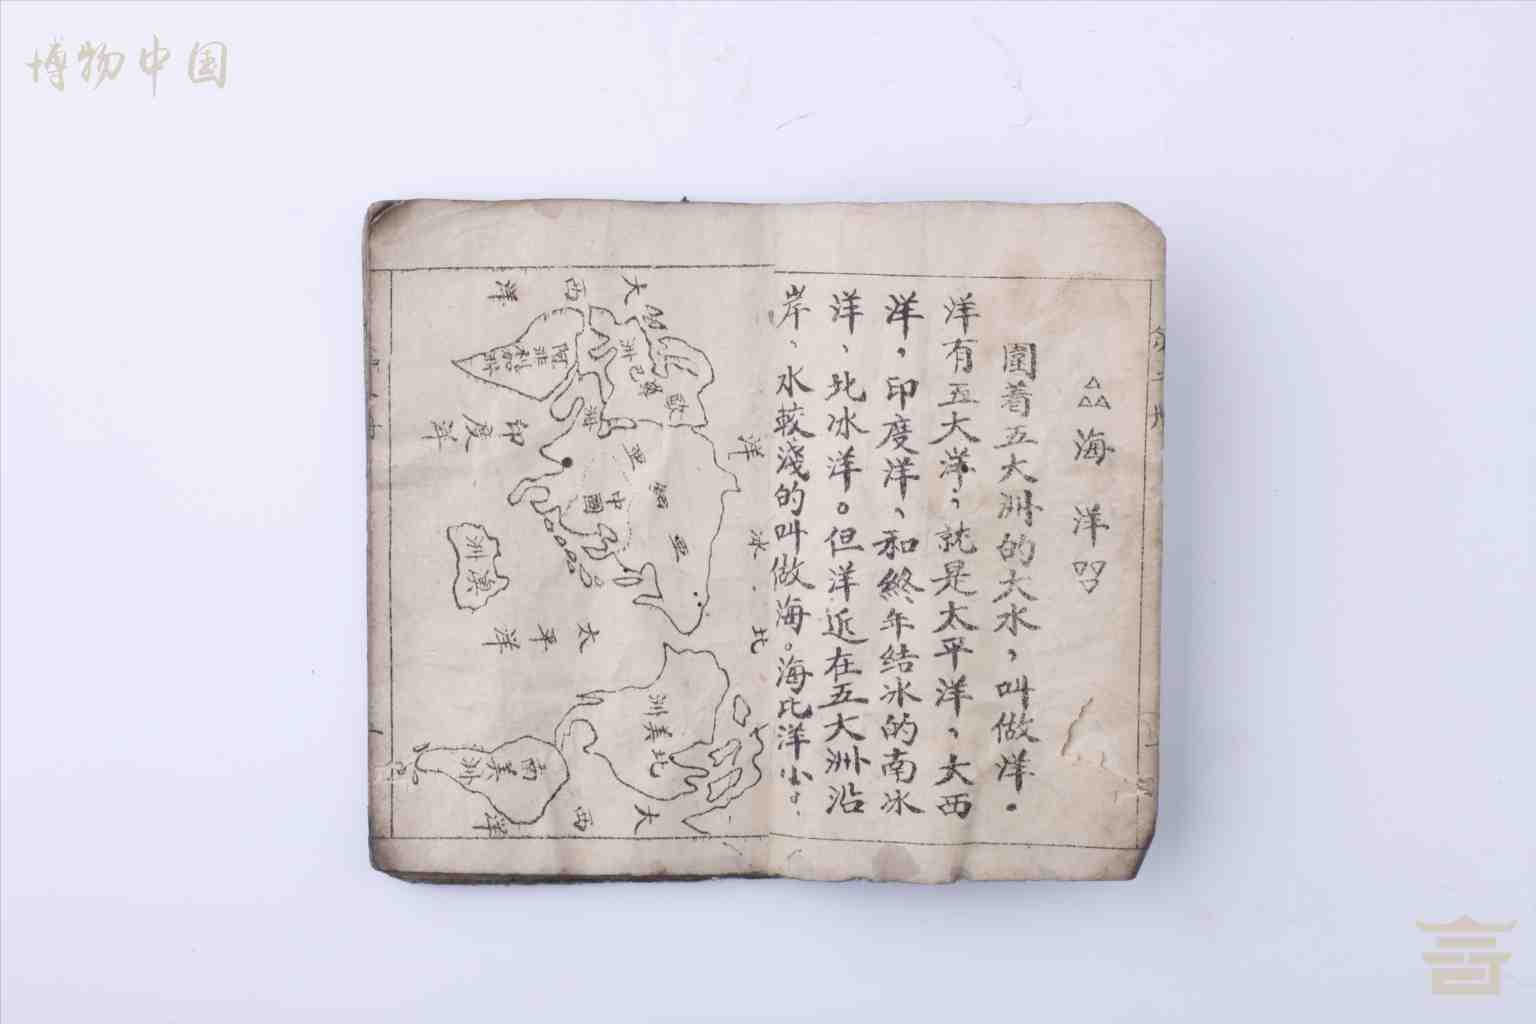 博物中国
海洋
圍着五大洲的大水，叫做洋。
洋有五大洋，就是太平洋、大西
洋，印度洋、和終年结冰的南冰
洋、北冰洋。但洋近在五大洲沿
岸、水較淺的叫做海。海比洋小。
大西洋
歐羅巴洲
阿非利加洲
印度洋
北冰洋
亞細亞洲
中國
澳洲
太平洋
北美洲
南美洲
大西洋